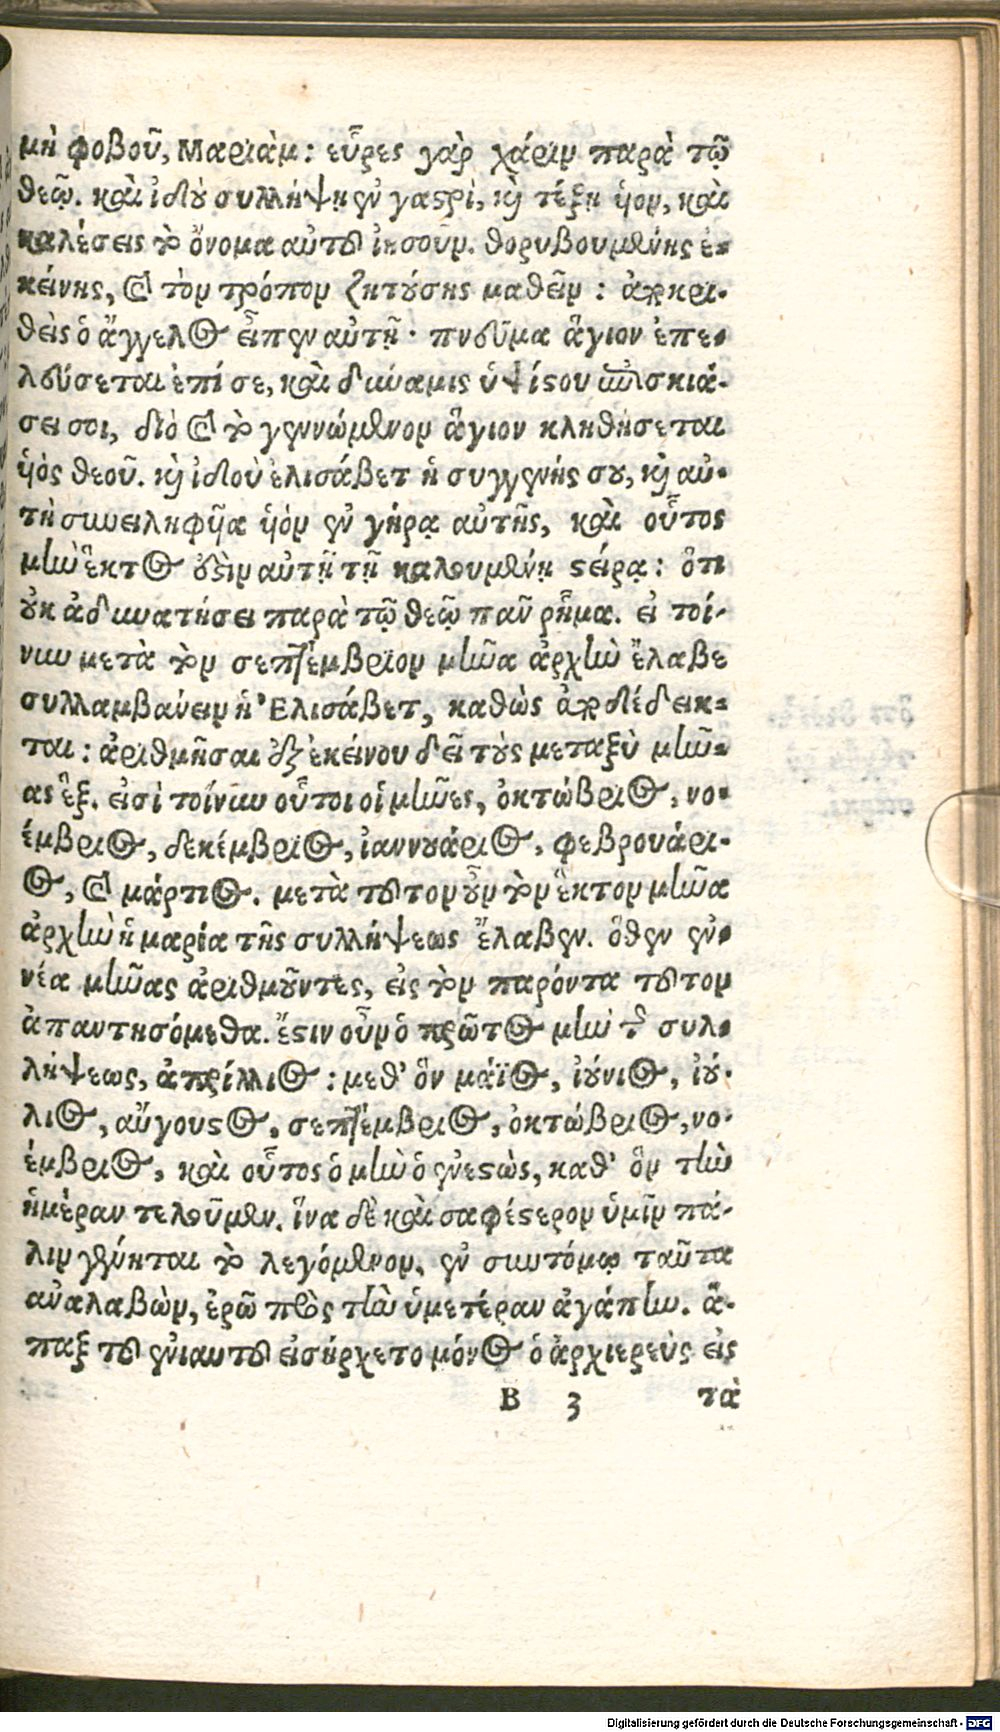 μὴ φοβοῦ, Μαριὰμ: εὗρες γὰρ χάριν παρὰ τῷ
θεῷ. καὶ ἰδοὺ συλλήψῃ ἐν γαστρὶ, καὶ τέξῃ ὑὸν, καὶ
καλέσεις τὸ ὄνομα αὐτοῦ ἰησοῦν. θορυβουμένης ἐ-
κείνης, καὶ τὸν τρόπον ζητούσης μαθεῖν: ἀποκρι-
θεὶς ὁ ἄγγελος εἶπεν αὐτῇ· πνεῦμα ἅγιον ἐπε-
λεύσεται ἐπί σε, καὶ δύναμις ὑψίστου ἐπισκιά-
σει σοι, διὸ καὶ τὸ γεννώμενον ἅγιον κληθήσεται
ὑὸς θεοῦ. καὶ ἰδοὺ ἐλισάβετ ἡ συγγενής σου, καὶ αὐ-
τὴ συνειληφῦα ὑὸν ἐν γήρᾳ αὐτῆς, καὶ οὗτος
μὴν ἕκτος ἐστὶν αὐτῇ τῇ καλουμένῃ στείρᾳ: ὅτι
οὐκ ἀδυνατήσει παρὰ τῷ θεῷ πᾶν ῥῆμα. εἰ τοί-
νυν μετὰ τὸν σεπτέμβριον μῆνα ἀρχὴν ἔλαβε
συλλαμβάνειν ἡ Ἐλισάβετ, καθὼς ἀποδέδεικ-
ται: ἀριθμῆσαι ἐξ ἐκείνου δεῖ τοὺς μεταξὺ μῆν-
ας ἓξ. εἰσὶ τοίνυν οὗτοι οἱ μῆνες, ὀκτώβριος, νο-
έμβριος, δεκέμβριος, ἰαννουάριος, φεβρουάρι-
ος, καὶ μάρτιος. μετὰ τοῦτον οὖν τὸν ἕκτον μῆνα
ἀρχὴν ἡ μαρία τῆς συλλήψεως ἔλαβεν. ὅθεν ἐν-
νέα μῆνας ἀριθμοῦντες, εἰς τὸν παρόντα τοῦτον
ἀπαντησόμεθα. ἔστιν οὖν ὁ πρῶτος μὴν τῆς συλ-
λήψεως, ἀπρίλλιος: μεθ' ὃν μάϊος, ἰούνιος, ἰού-
λιος, αὔγουστος, σεπτέμβριος, ὀκτώβριος, νο-
έμβριος, καὶ οὗτος ὁ μὴν ὁ ἐνεστὼς, καθ' ὃν τὴν
ἡμέραν τελοῦμεν. ἵνα δὲ καὶ σαφέστερον ὑμῖν πά-
λιν γένηται τὸ λεγόμενον, ἐν συντόμῳ ταῦτα
ἀναλαβὼν, ἐρῶ πρὸς τὴν ὑμετέραν ἀγάπην. ἅ-
παξ τοῦ ἐνιαυτοῦ εἰσήρχετο μόνος ὁ ἀρχιερεὺς εἰς
B 3 τὰ
Digitalisierung gefördert durch die Deutsche Forschungsgemeinschaft - DFG